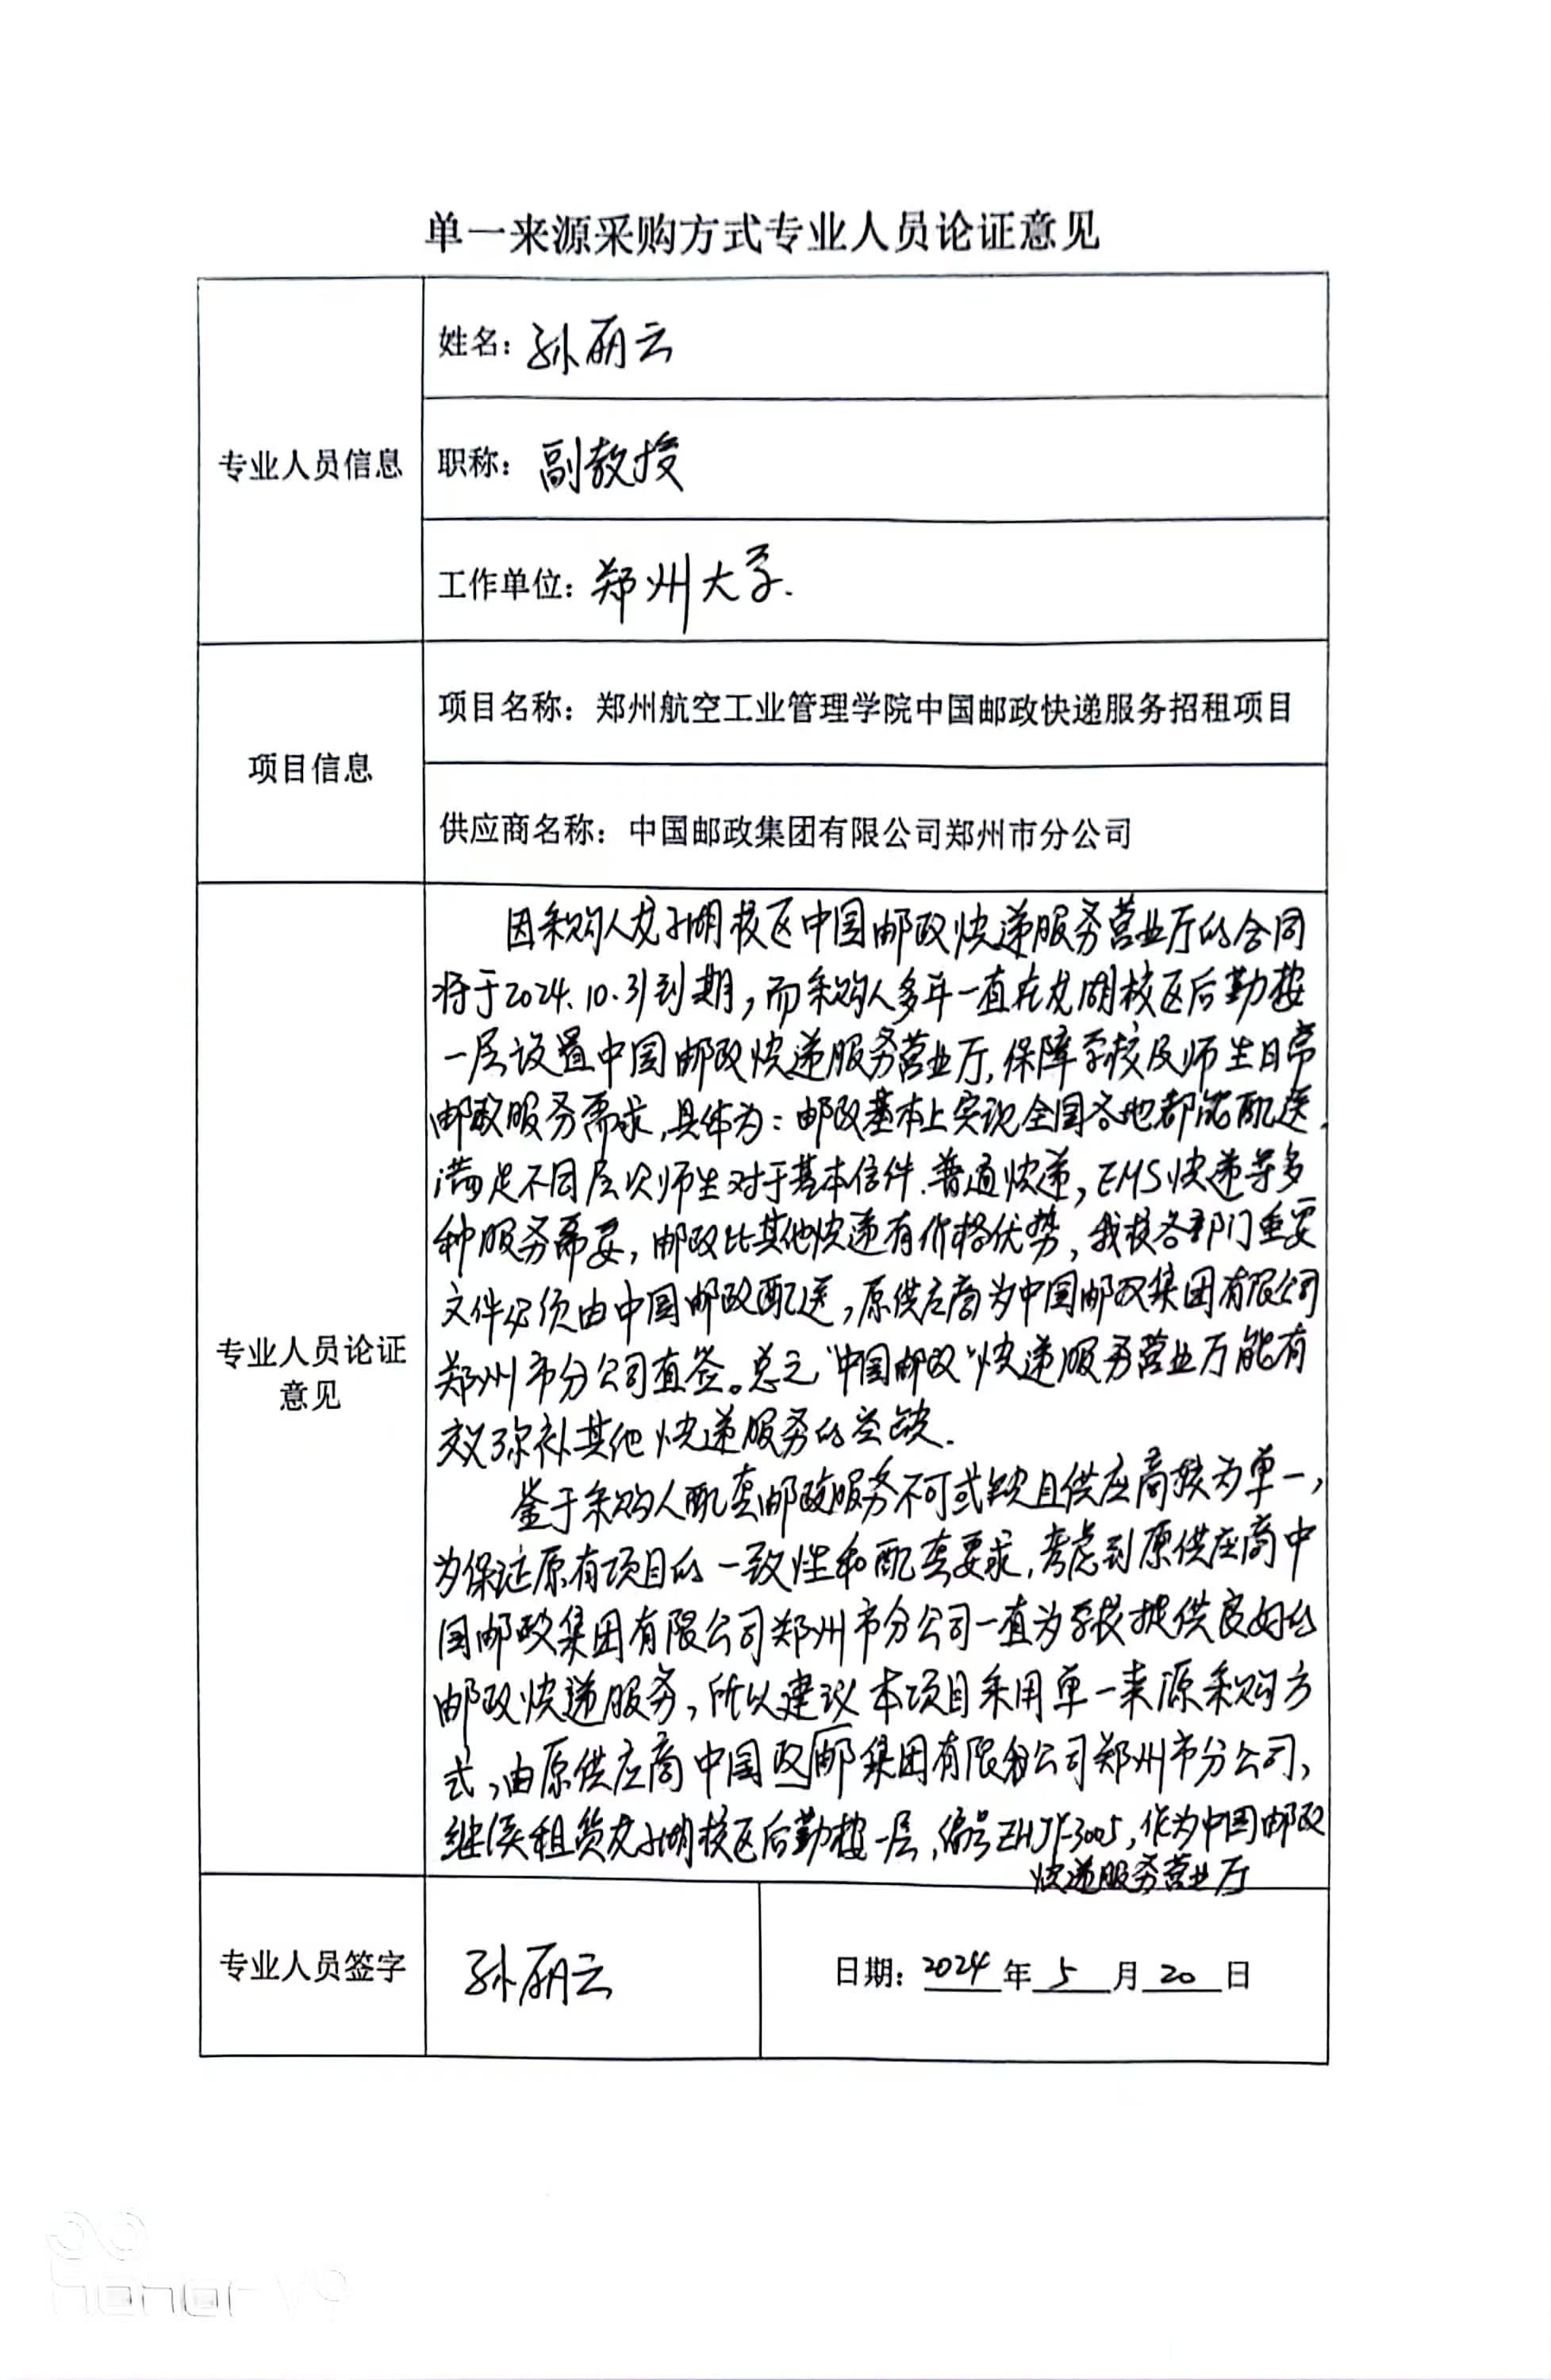 单一来源采购方式专业人员论证意见
专业人员信息
姓名：孙丽云
职称：副教授
工作单位：郑州大学.
项目信息
项目名称：郑州航空工业管理学院中国邮政快递服务招租项目
供应商名称：中国邮政集团有限公司郑州市分公司
专业人员论证
意见
因采购人龙子湖校区中国邮政快递服务营业厅的合同
将于2024.10.31到期，而采购人多年一直在龙湖校区后勤楼
一层设置中国邮政快递服务营业厅,保障学校及师生日常
邮政服务需求,具体为：邮政基本上实现全国各地都能配送,
满足不同层次师生对于基本信件.普通快递，EMS快递等多
种服务需要，邮政比其他快递有价格优势，我校各部门重要
文件必须由中国邮政配送，原供应商为中国邮政集团有限公司
郑州市分公司直签。总之“中国邮政”快递服务营业厅能有
效弥补其他快递服务的空缺.
鉴于采购人配套邮政服务不可或缺且供应商较为单一，
为保证原有项目的一致性和配套要求,考虑到原供应商中
国邮政集团有限公司郑州市分公司一直为学校提供良好的
邮政快递服务，所以建议本项目采用单一来源采购方
式，由原供应商中国政邮集团有限公司郑州市分公司，
继续租赁龙子湖校区后勤楼一层,编号ZHJY-3005,作为中国邮政
快递服务营业厅
专业人员签字
孙丽云
日期：2024年5月20日